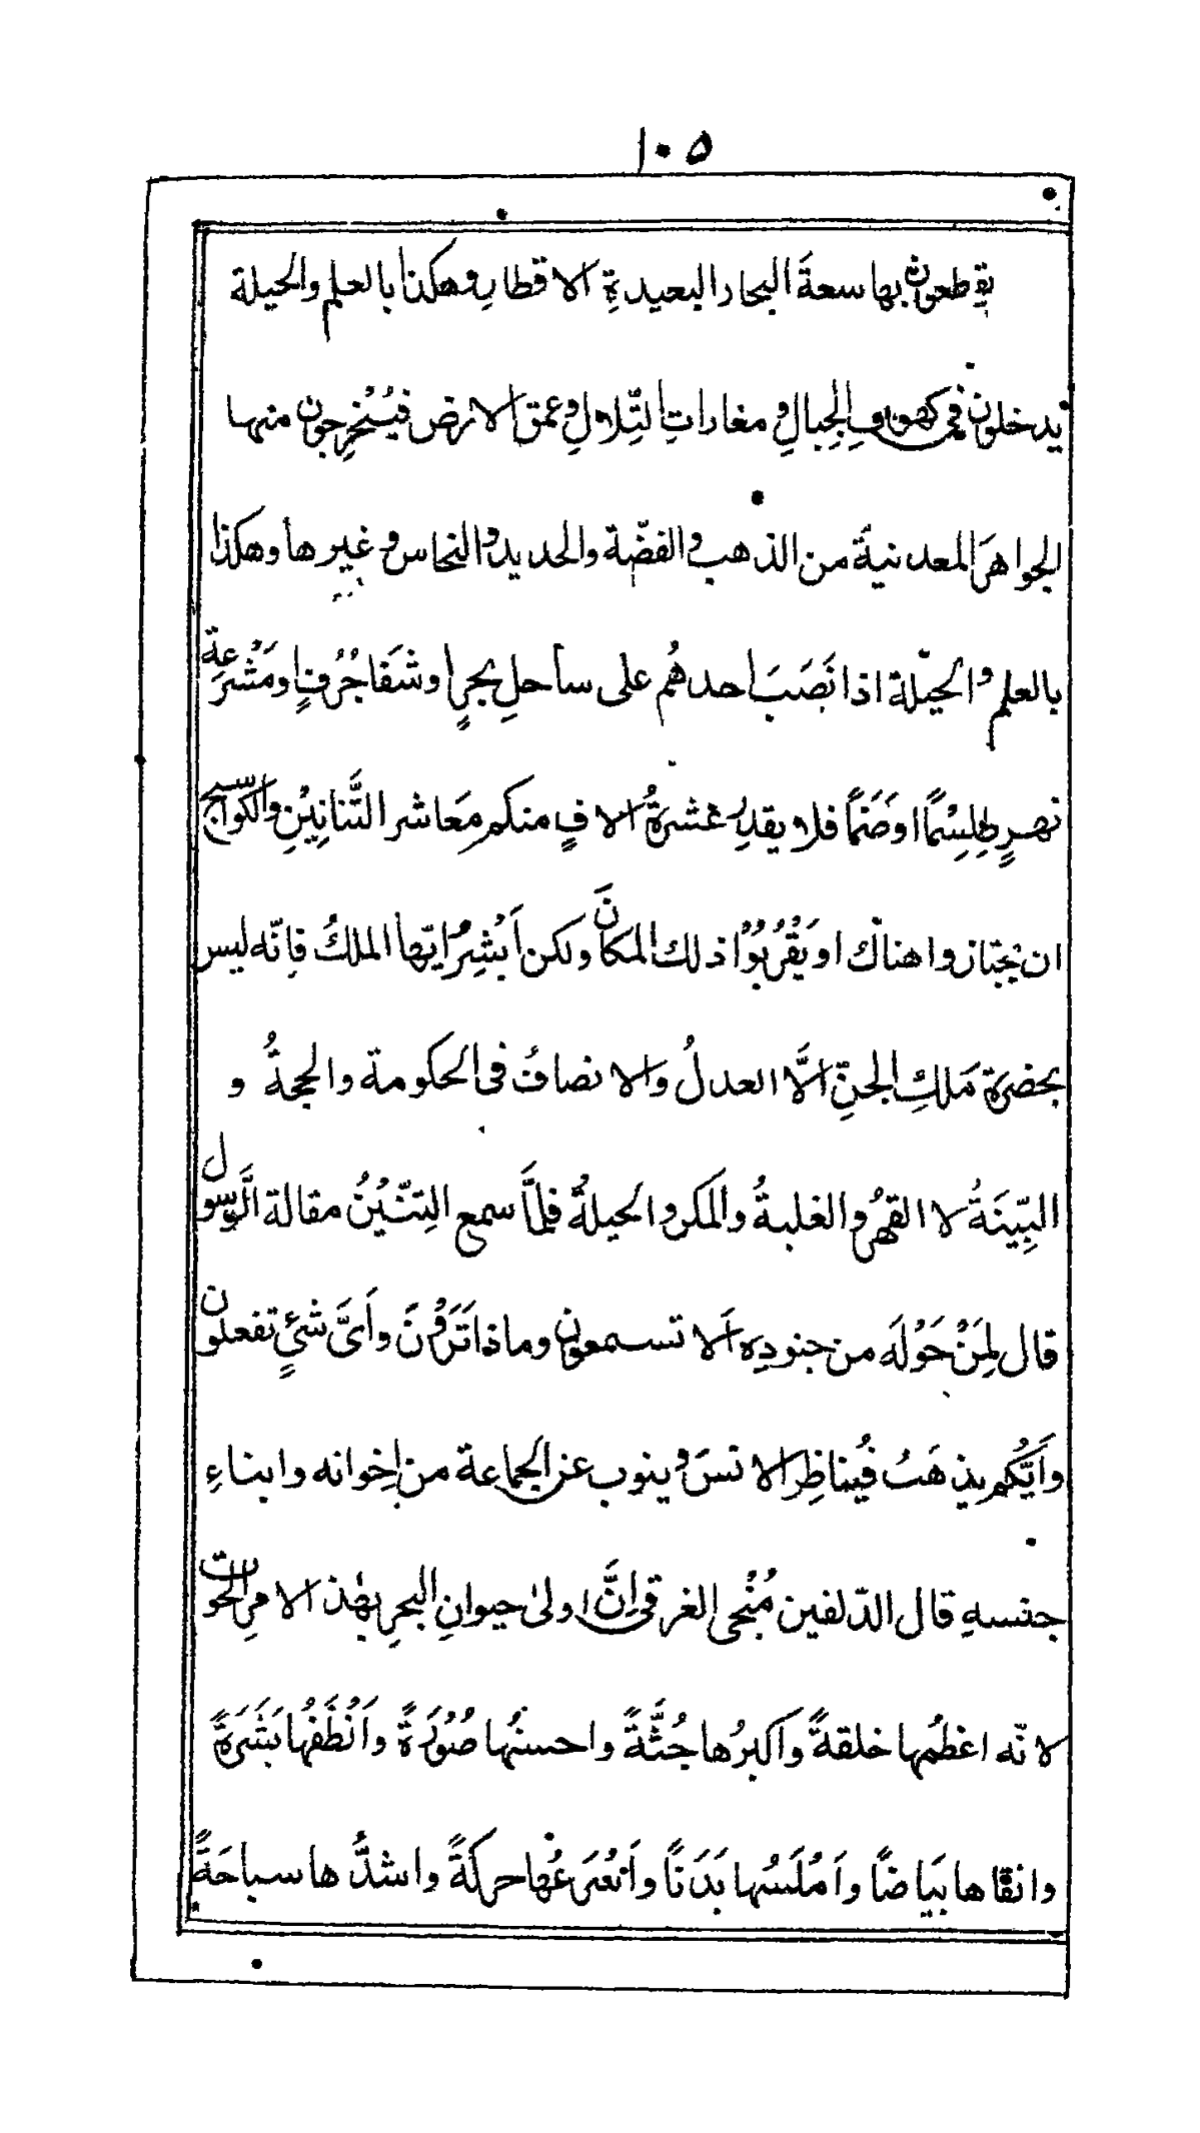 ١٠٥
يقطعون بها سعةَ البحار البعيدةِ الاقطارِ وهكذا بالعلم والحيلة
يدخلون في كهوفِ الجِبالِ ومغاراتِ التِّلالِ وعمق الارض فيُسْتَخرِجون منها
الجواهرَ المعدنيةَ من الذهب والفضّة والحديد والنحاس وغيرها وهكذا
بالعلم والحيلة اذا نَصَبَ احدهُم على ساحلِ بحرٍ او شَفا جُرُفٍ او مَشْرَعةِ
نهرٍ طِلِسْمًا او صَنَمًا فلا يقدِرُ عشرةُ الافٍ منكم مَعاشر التَّنانِيْنِ والكَواسج
ان يَّجتازوا هناك او يَقْرُبُوْا ذلك المكانَ ولكن اَبْشِرْ ايّها الملكُ فانّه ليس
بحضرة مَلكِ الجنِّ الَّا العدلُ والانصافُ فى الحكومة والحجةُ و
البيِّنَةُ لا القهرُ والغلبةُ والمكر والحيلةُ فلمَّا سمع التِنّيْنُ مقالة الرَّسول
قال لِمَنْ حَوْلَه من جنودِه اَلا تسمعون وماذا تَرَوْنَ واَىَّ شئٍ تفعلون
واَيُّكم يذهَبُ فيُناظِر الانسَ وينوب عن الجماعة من اِخوانه وابناءِ
جنسهِ قال الدّلفين مُنْجى الغرقى اِنَّ اولىٰ حيوانِ البحرِ بهٰذ الامرِ الحُوت
لانّه اعظمُها خلقةً واَكبرُها جُثَّةً واحسنُها صُوْرَةً واَنْظَفُها بَشَرَةً
وانقاها بَيَاضًا واَمْلَسُها بَدَنًا واَسْرَعُها حركةً واشدُّها سباحَةً